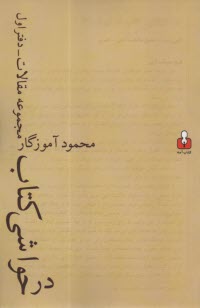 در حواشی کتاب
مجموعه مقالات - دفتر اول
محمود آموزگار
کتاب آمه